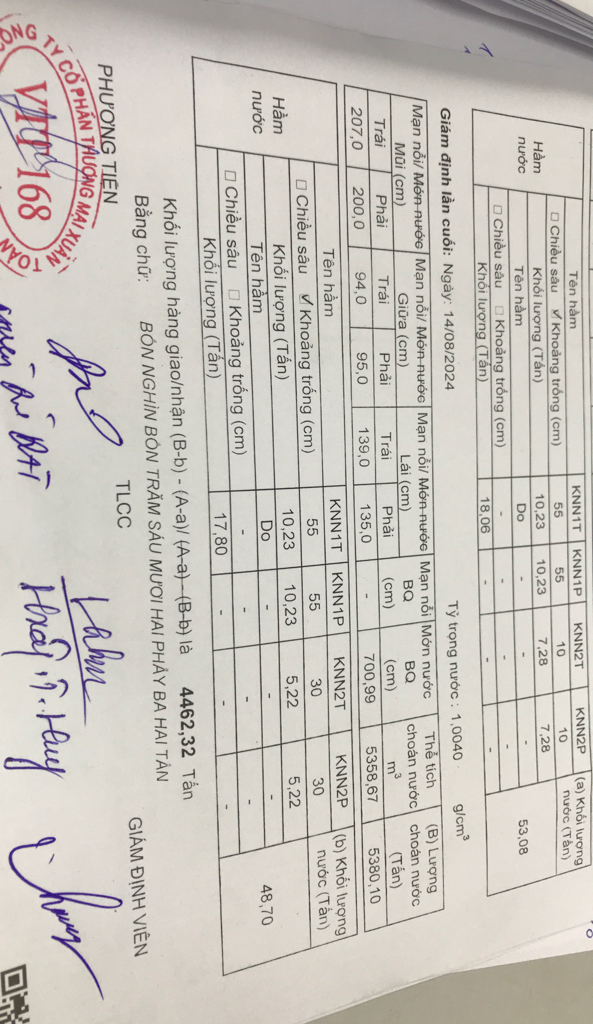 Hầm nước
Tên hầm KNN1T KNN1P KNN2T KNN2P (a) Khối lượng nước (Tấn)
□ Chiều sâu ☑ Khoảng trống (cm) 55 55 10 10 53,08
Khối lượng (Tấn) 10,23 10,23 7,28 7,28
Tên hầm Do - - -
□ Chiều sâu □ Khoảng trống (cm) - - - -
Khối lượng (Tấn) 18,06 - - -
Giám định lần cuối: Ngày: 14/08/2024 Tỷ trọng nước : 1,0040 g/cm³
Mạn nổi/ Mớn nước Mũi (cm) Mạn nổi/ Mớn nước Giữa (cm) Mạn nổi/ Mớn nước Lái (cm) Mạn nổi BQ (cm) Mớn nước BQ (cm) Thể tích choán nước m³ (B) Lượng choán nước (Tấn)
Trái Phải Trái Phải Trái Phải
207,0 200,0 94,0 95,0 139,0 135,0 - 700,99 5358,67 5380,10
Hầm nước
Tên hầm KNN1T KNN1P KNN2T KNN2P (b) Khối lượng nước (Tấn)
□ Chiều sâu ☑ Khoảng trống (cm) 55 55 30 30 48,70
Khối lượng (Tấn) 10,23 10,23 5,22 5,22
Tên hầm Do - - -
□ Chiều sâu □ Khoảng trống (cm) - - - -
Khối lượng (Tấn) 17,80 - - -
Khối lượng hàng giao/nhận (B-b) - (A-a)/ (A-a) - (B-b) là 4462,32 Tấn
Bằng chữ: BỐN NGHÌN BỐN TRĂM SÁU MƯƠI HAI PHẨY BA HAI TẤN
PHƯƠNG TIỆN TLCC GIÁM ĐỊNH VIÊN
CÔNG TY CỔ PHẦN THƯƠNG MẠI XUÂN TOÀN
168